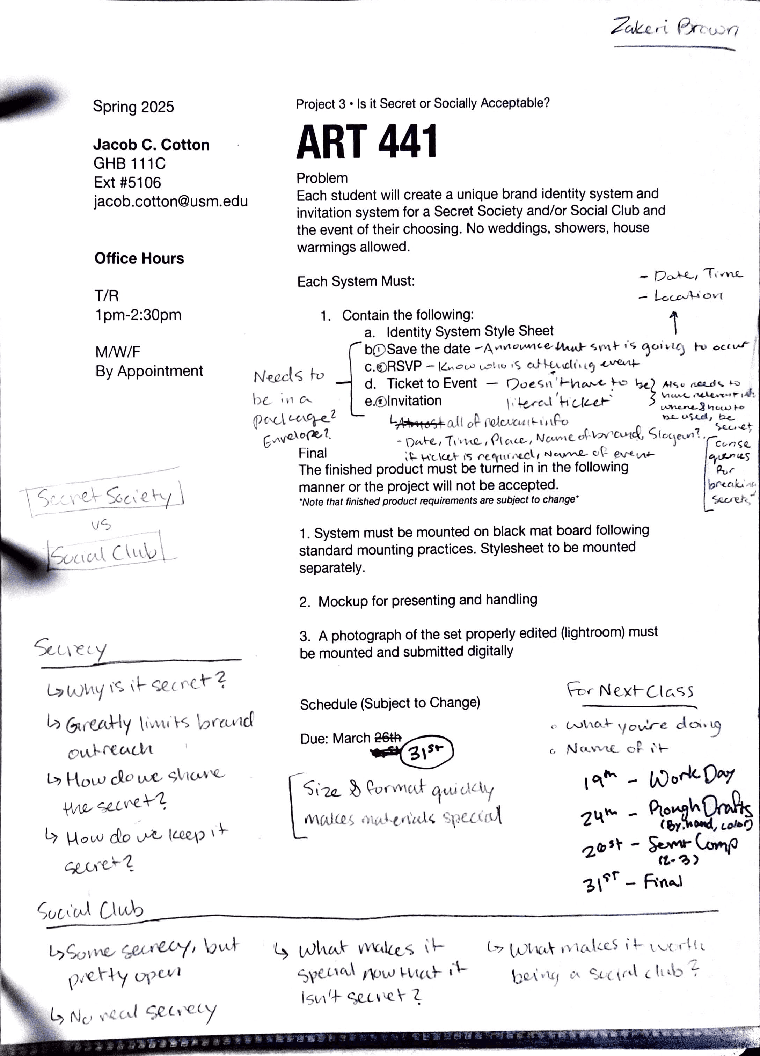 Zakeri Brown
Spring 2025
Jacob C. Cotton
GHB 111C
Ext #5106
jacob.cotton@usm.edu
Office Hours
T/R
1pm-2:30pm
M/W/F
By Appointment
Project 3 • Is it Secret or Socially Acceptable?
ART 441
Problem
Each student will create a unique brand identity system and
invitation system for a Secret Society and/or Social Club and
the event of their choosing. No weddings, showers, house
warmings allowed.
Each System Must:
- Date, Time
- Location
1. Contain the following:
a. Identity System Style Sheet
b. Save the date - Announce that smt is going to occur
c. RSVP - Know who is attending event
d. Ticket to Event - Doesn't have to be
literal 'ticket'
Also needs to
have relevant info
where & how to
be used, be
secret
e. Invitation
Almost all of relevant info
- Date, Time, Place, Name of brand, Slogan?
if ticket is required, Name of event
Needs to
be in a
package?
Envelope?
for
breaking
secrets
Final
The finished product must be turned in in the following
manner or the project will not be accepted.
*Note that finished product requirements are subject to change*
Secret Society
vs
Social Club
1. System must be mounted on black mat board following
standard mounting practices. Stylesheet to be mounted
separately.
2. Mockup for presenting and handling
3. A photograph of the set properly edited (lightroom) must
be mounted and submitted digitally
Schedule (Subject to Change)
Due: March 26th
31st
Size & format quickly
makes materials special
Secrecy
↳ Why is it secret?
↳ Greatly limits brand
outreach
↳ How do we share
the secret?
↳ How do we keep it
secret?
For Next Class
◦ What you're doing
◦ Name of it
19th - Work Day
24th - Rough Drafts
(By hand, color)
26st - Semi Comp
(2-3)
31st - Final
Social Club
↳ Some secrecy, but
pretty open
↳ No real secrecy
↳ What makes it
special now that it
isn't secret?
↳ What makes it worth
being a social club?